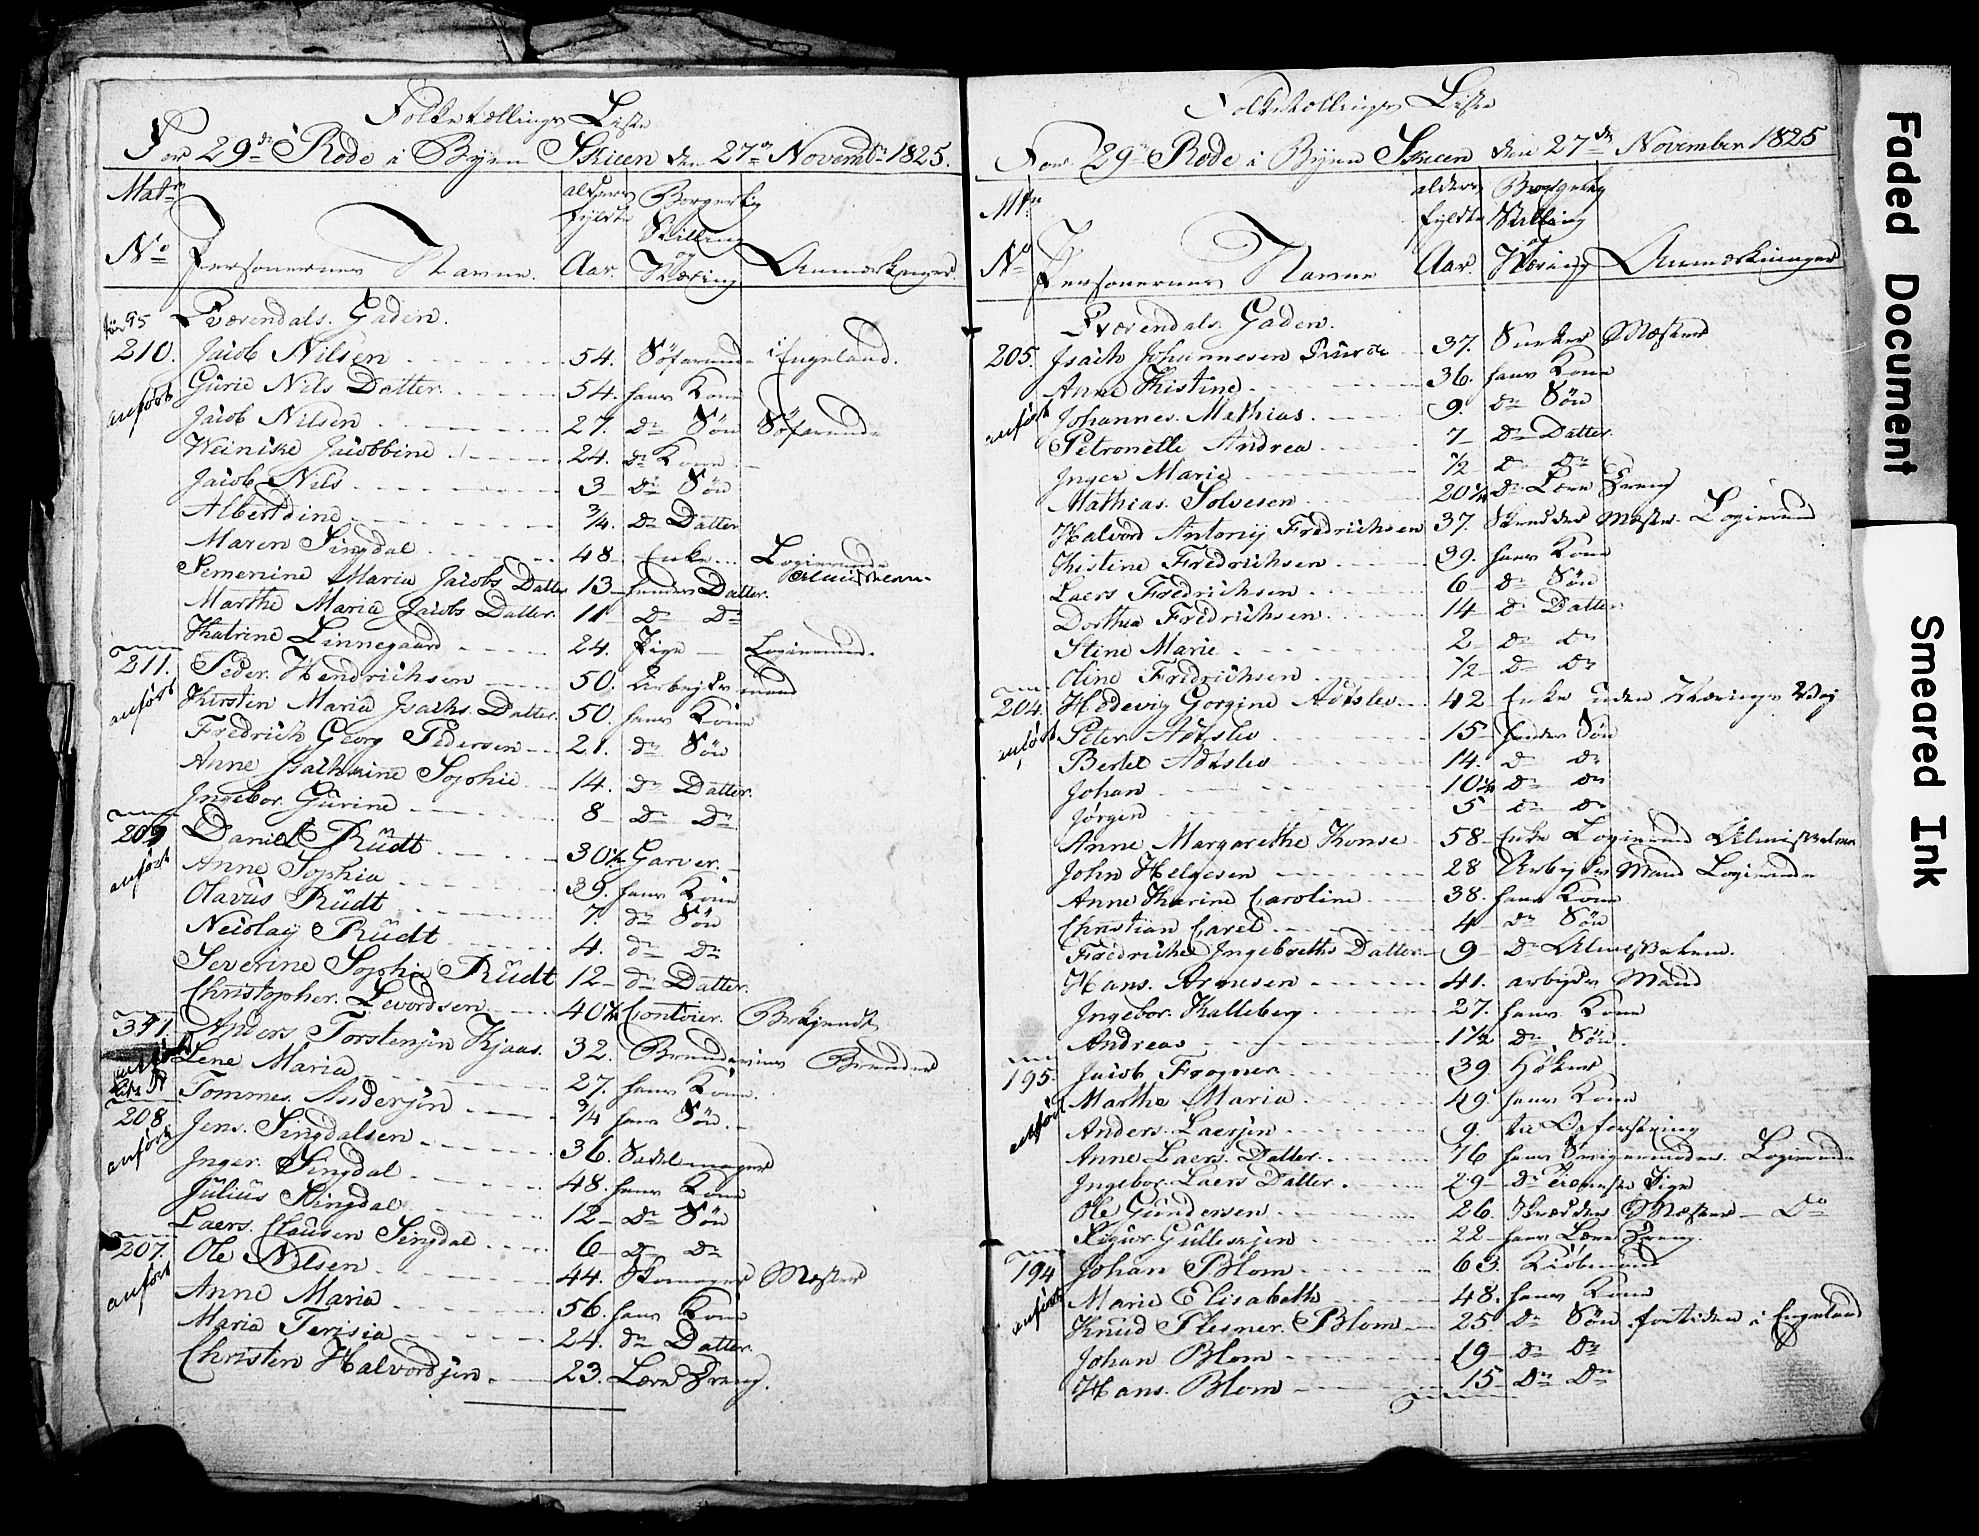 Folketællings Liste
For 29de Rode i Byen Skien den 27de Novembr 1825.
Matr No Personernes Navne. alders fyldte Aar Borgerlig Stilling og Næring Anmærkninger
Tværendals. Gaden.
210. Jacob Nilsen 54. Söfarende i Engeland.
anført Gurie Nils Datter. 54. hans Kone
Jacob Nilsen 27. Do Sön Söfarende
Jacobbine 24. do Kone
Jacob Nils 3 Do Sön
Albertdine 3/4. Do Datter
Maren Singdal 48 Enke Logierende
Semenine Maria Jacobs Datter 13 hendes Datter.
Marthe Maria Jacobs Datter. 11 Do Do
Katrine Linnegaard 24. Pige Logierende.
211. Peder Hendrichsen 50. Arbejdsmand
anført Kirsten Maria Isachs. Datter. 50. hans Kone
Fredrich Georg Pedersen 21. do Sön
Anne Cathrine Sophie 14. Do Datter.
Ingebor. Gurine 8 Do Do
209 Daniel Rüdt 30 1/2 Garver.
anført Anne Sophia 39. hans Kone
Olavus Rüdt 7. do Sön
Neicolaÿ Rüdt 4. do do
Severine Sophie Rüdt 12 do Datter.
Christopher. Levordsen 40 1/2 Contoier.
Anders Torstensen Kjaas. 32. Brender
Lene Maria 27. hans Kone.
Tommes Andersen 3/4 hans Sön.
208. Jens. Singdalsen 36. Sadelmager
anført Inger. Singdal 48. hans Kone
Julius Singdal 12 Do Sön
Laers. Clausen Singdal 6 Do Do
207. Ole Nilsen 44. Skomager Mester
anført Anne Maria 56. hans Kone
Maria Terisia 24. do Datter.
Christen Halvordsen 23. Lære Dreng.
Folketællings Liste
For 29de Rode i Byen Skien den 27de November 1825
Mtr No Personernes Navne alders fyldte Aar Borgerlig Stilling og Næring Anmærkninger
Tværendals. Gaden.
205. Isach Johannesen 37. Mester
Anne Kistine 36. hans Kone
anført Johannes. Mathias. 9. do Sön
Petronelle Andrea 7 Do Datter.
Inger Marie 1/2 do do
Mathias. Solvesen 20 1/2 do Lære Dreng
Halvord Antonij Fredrichsen 37. Skredder Mester. Logierende
Kistine Fredrichsen 39. hans Kone
Laers Fredrichsen 6 Do Sön
Dorthea Fredrichsen 14 do Datter
Stine Marie 2 do do
Oline Fredrichsen 1/2 do do
204. Hedevig Gorgine Adtslev 42 Enke uden Nærings Vej
anført Peter Adtslev 15 hendes Sön
Bertel Adtslev 14. do do
Johan 10 1/2 do do
Jørgen 5 do do
Anne Margarethe 58 Enke Logierende
John Helgesen 28 Arbejds Mand Logierende
Anne Karine Caroline 38. hans Kone
Christian Carel 4 do Sön
Fredriche Ingebreths Datter 9 Do
Hans. Arnesen 41. arbejds Mand
Ingebor. Kalleberg 27. hans Kone
Andreas 1 1/2 do Sön.
195. Jacob Frogner 39 Höker
Marthe Maria 49. hans Kone
anført Anders. Laersen 9. til Opfostring
Anne Laers. Datter 76 hans Svigermoder. Logierende
Ingebor. Laers Datter. 29 do Pige
Ole Gundersen 26. Skredder Mester Do
22 hans Lære Dreng.
194 Johan Blom 63. Kiöbmand
Marie Elisabeth 48. hans Kone
anført Knud Plesner. Blom 25. do Sön. fortiden i Engeland
Johan Blom 19 do do
Hans. Blom 15 Do Do
Faded Document
Smeared Ink